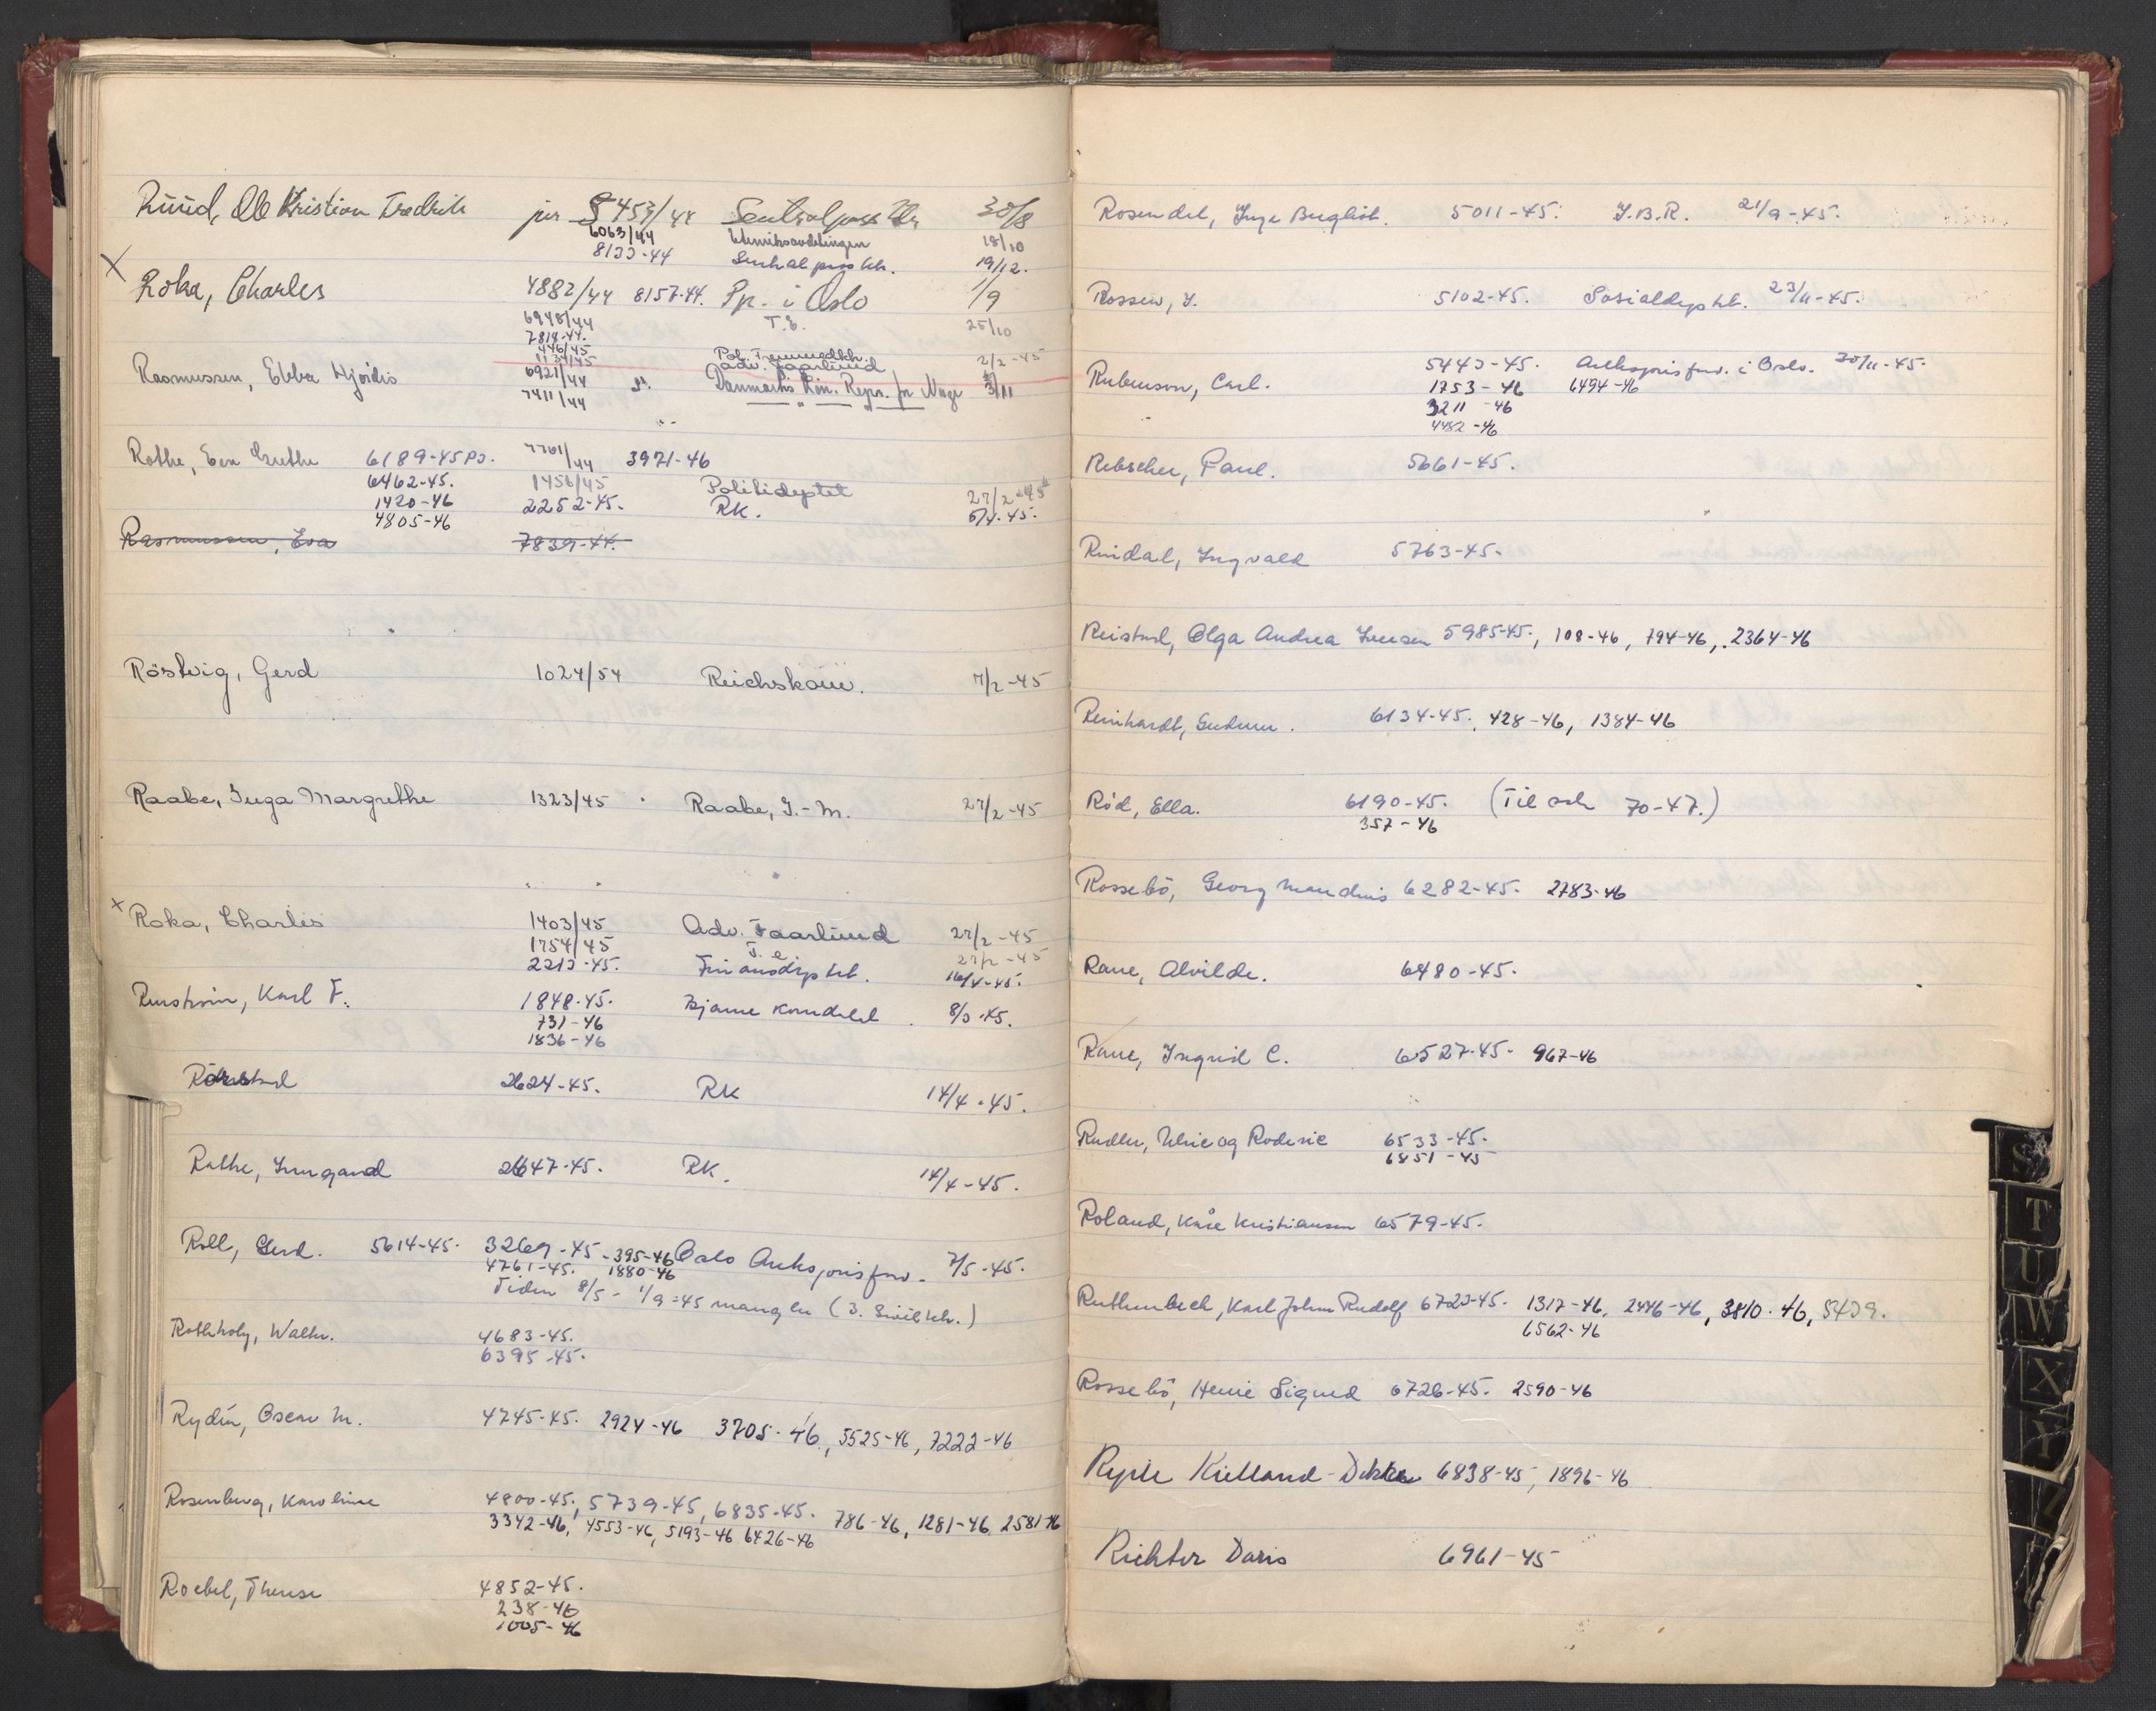 Ruud, Ole Kristian Fredrik jnr 5453/44 Sentralpass ktr 30/8
6063/44 Utenriksavdelingen 18/10
8133-44 Sentralpassktr. 19/12.
X Roka, Charles 4882/44 8157-44. Pp. i Oslo 1/9
6948/44 T.E. 25/10
7814-44.
446/45 Pol. Fremmedktr. 2/2-45
1134/45 adv. Faarlund
Rasmussen, Ebba Hjørdis 6921/44 Danmarks Kon. Repr. for Norge 3/11
7411/44
Rothe, Eva Grethe 6189-45 PD. 7701/44 3971-46
6462-45. 1456/45 Politideptet 27/2-45
1420-46 2252-45. RK. 5/4-45.
4805-46
Rasmussen, Eva 7839-44.
Röstvig, Gerd 1024/54 Reichskom. 7/2-45
Raabe, Inga Margrethe 1323/45 Raabe, I.-M. 27/2-45
X Roka, Charles 1403/45 Adv. Faarlund 27/2-45
1754/45 T.E. 27/2-45
2213-45. Finansdeptet. 16/4-45.
Karl F. 1848-45. Bjarne 8/3-45.
731-46
1836-46
2624-45. RK 14/4-45.
Rothe, Irmgard 2647-45. RK. 14/4-45.
Roll, Gerd. 5614-45. 3269-45 - 395-46 Oslo 7/5-45.
4761-45. 1880-46
Tiden 8/5 - 1/9-45 mangler (3. Sivilktr.)
Rothholz, Walter. 4683-45.
6395-45.
Rydin, Oscar M. 4745-45. 2924-46 3705-46, 5525-46, 7222-46
Rosenberg, Karoline 4800-45, 5739-45, 6835-45. 786-46, 1281-46, 2581-46
3342-46, 4553-46, 5193-46 6426-46
Roebel, Therese 4852-45.
238-46
1005-46
Rosendal, Inge 5011-45. J.B.R. 21/9-45.
Rossen, J. 5102-45. Sosialdeptet. 23/11-45.
Rubenson, Carl. 5443-45. i Oslo. 30/11-45.
1753-46 6494-46
3211-46
4482-46
Rebscher, Paul. 5661-45.
Rindal, Ingvald 5763-45.
Reistad, Olga Andrea Jensen 5985-45, 108-46, 794-46, 2364-46
Reinhardt, Gudrun. 6134-45. 428-46, 1384-46
Röd, Ella. 6190-45. (Til och 70-47.)
357-46
Rossebö, Georg Mandius 6282-45. 2783-46
Rane, Alvilde. 6480-45.
Rane, Ingrid C. 6527-45. 967-46
Rudler, og Roderic 6533-45.
6851-45
Roland, Kåre Kristiansen 6579-45.
Ruthenbeck, Karl Johan Rudolf 6723-45. 1317-46, 2446-46, 3810-46, 5439.
6562-46
Rossebö, Henie Sigurd 6726-45. 2590-46
Kielland- 6838-45, 1896-46
Richter Doris 6961-45
S
T
U
W
X
Y
Z